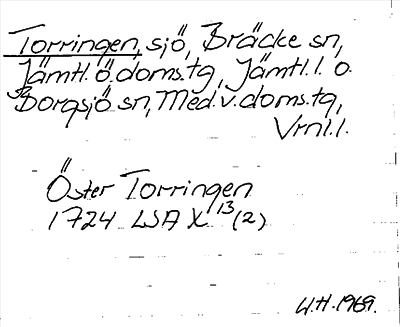 Torringen, sjö, Bräcke sn,
Jämtl. ö. doms.tg, Jämtl. l. o.
Borgsjö sn, Med. v. doms.tg,
Vrnl. l.
Öster Torringen
1724 LSA X 13 (2)
H.H. 1969.